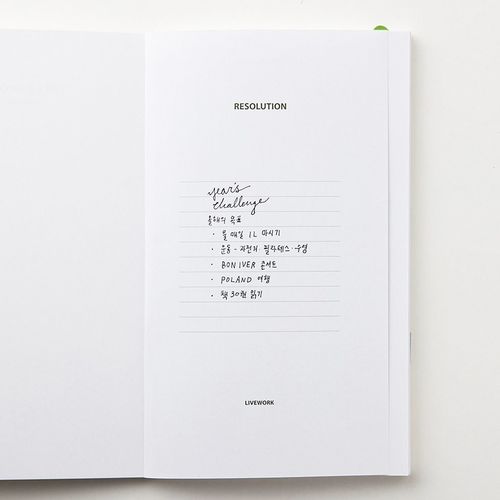 RESOLUTION
year's
challenge
올해의 목표
· 물 매일 1L 마시기
· 운동 - 자전거·필라테스·수영
· BON IVER 콘서트
· POLAND 여행
· 책 30권 읽기
LIVEWORK